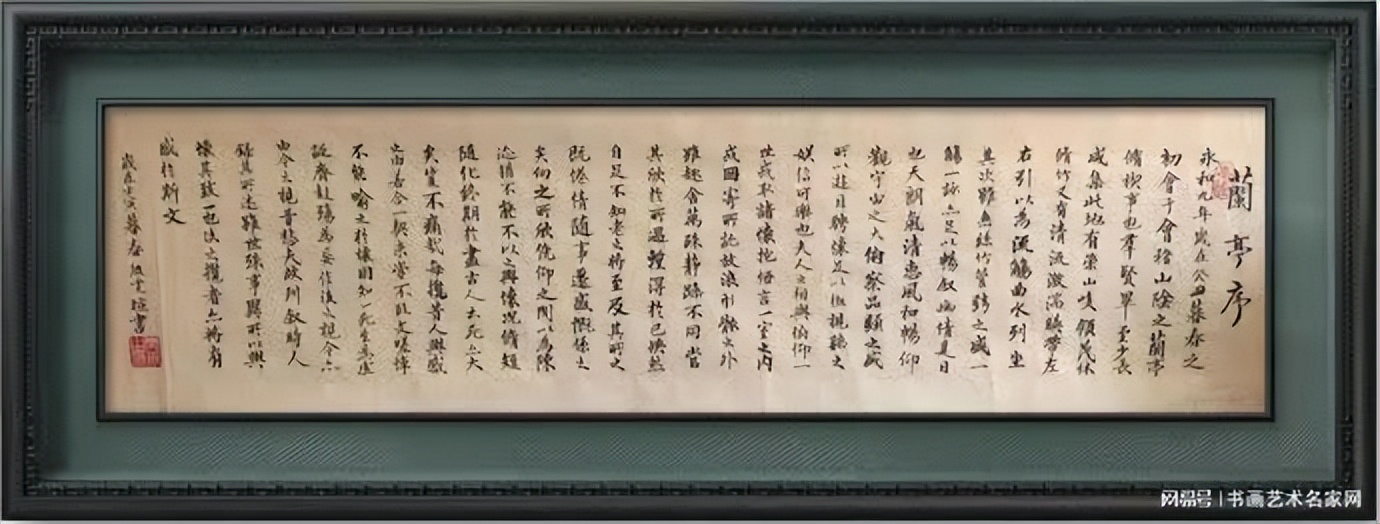 蘭亭序
永和九年歲在癸丑暮春之
初會于會稽山陰之蘭亭
脩稧事也羣賢畢至少長
咸集此地有崇山峻領茂林
脩竹又有清流激湍暎帶左
右引以為流觴曲水列坐
其次雖無絲竹管弦之盛一
觴一詠亦足以暢叙幽情是日
也天朗氣清惠風和暢仰
觀宇宙之大俯察品類之盛
所以遊目騁懷足以極視聽之
娛信可樂也夫人之相與俯仰一
世或取諸懷抱悟言一室之內
或因寄所託放浪形骸之外
雖趣舍萬殊靜躁不同當
其欣於所遇蹔得於己怏然
自足不知老之將至及其所之
既倦情隨事遷感慨係之
矣向之所欣俛仰之間以為陳
迹猶不能不以之興懷況脩短
隨化終期於盡古人云死亦大
矣豈不痛哉每攬昔人興感
之由若合一契未嘗不臨文嗟悼
不能喻之於懷固知一死生為虛
誕齊彭殤為妄作後之視今亦
由今之視昔悲夫故列叙時人
錄其所述雖世殊事異所以興
懷其致一也後之攬者亦將有
感於斯文
歲在壬寅暮春 書
网易号 | 书画艺术名家网